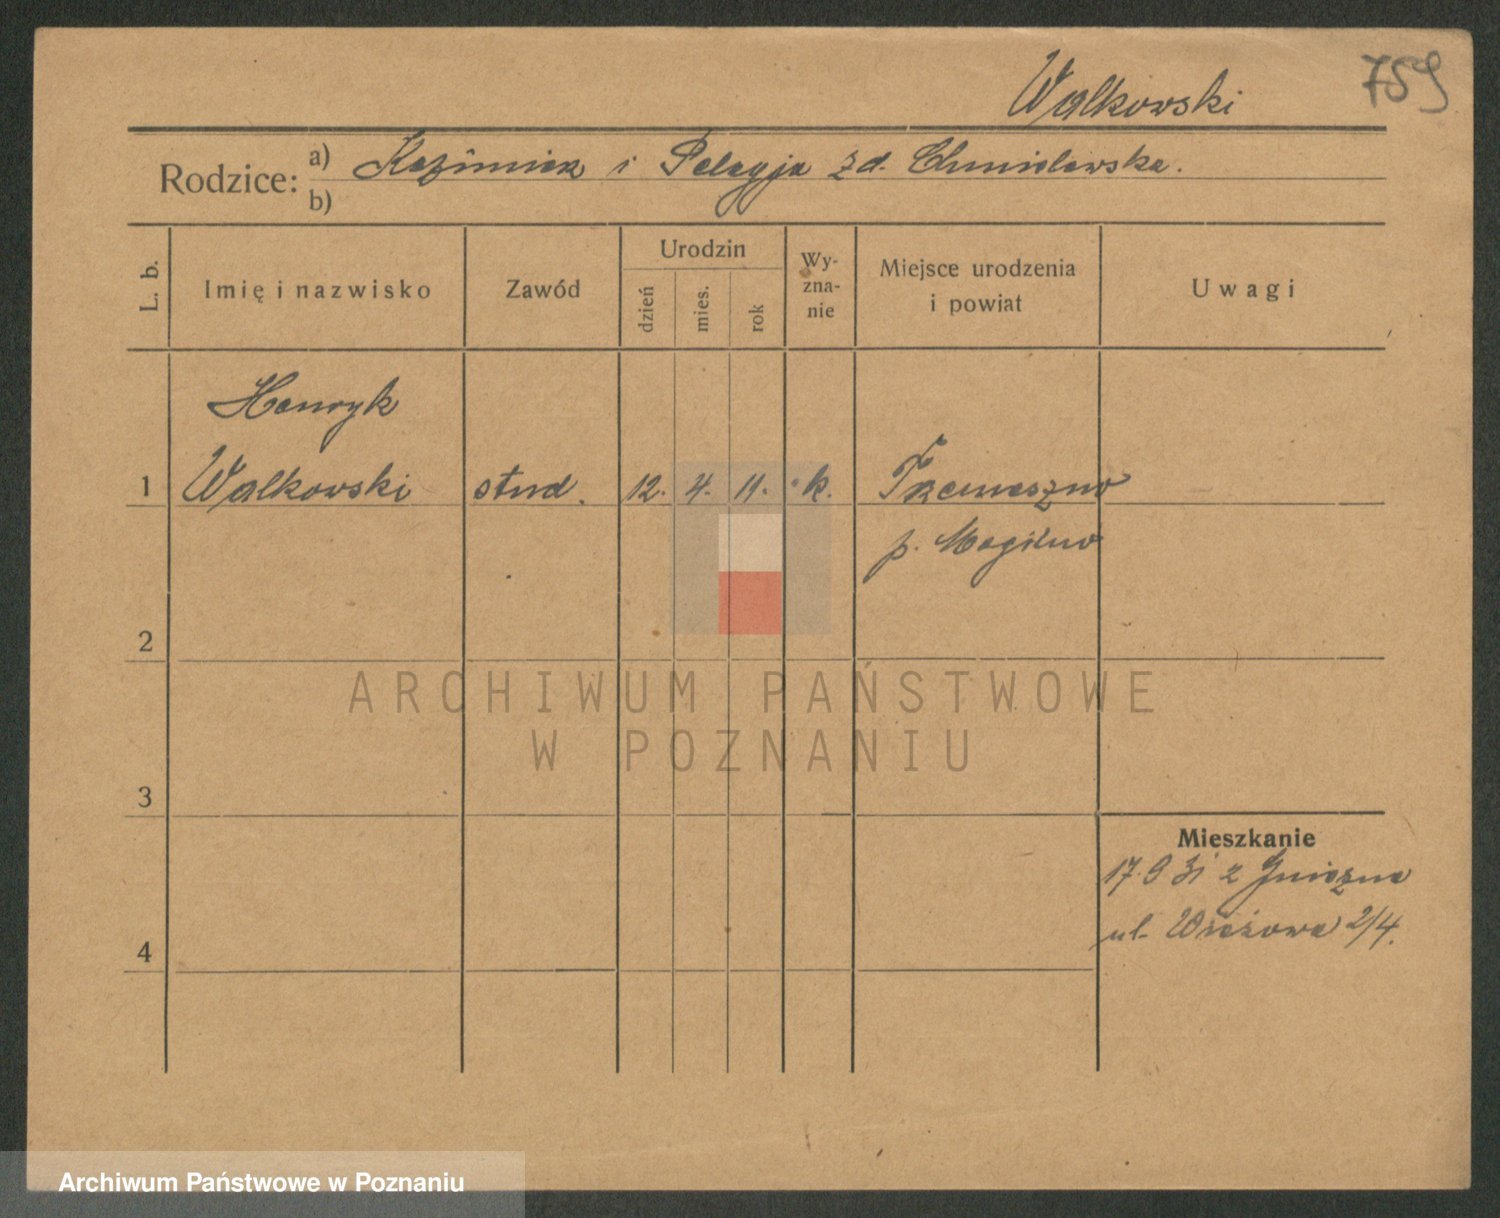 Walkowski 759
Rodzice: a) Kazimierz i Pelagja z d. Chmielewska.
b)
L. b. Imię i nazwisko Zawód Urodzin dzień mies. rok Wy-zna-nie Miejsce urodzenia i powiat Uwagi
Henryk
1 Walkowski stud. 12. 4. 11. k. Trzemeszno
p. Mogilno
2
ARCHIWUM PAŃSTWOWE
W POZNANIU
3
Mieszkanie
17.9 31 z Gniezna
ul. Wieżowa 2/4.
4
Archiwum Państwowe w Poznaniu